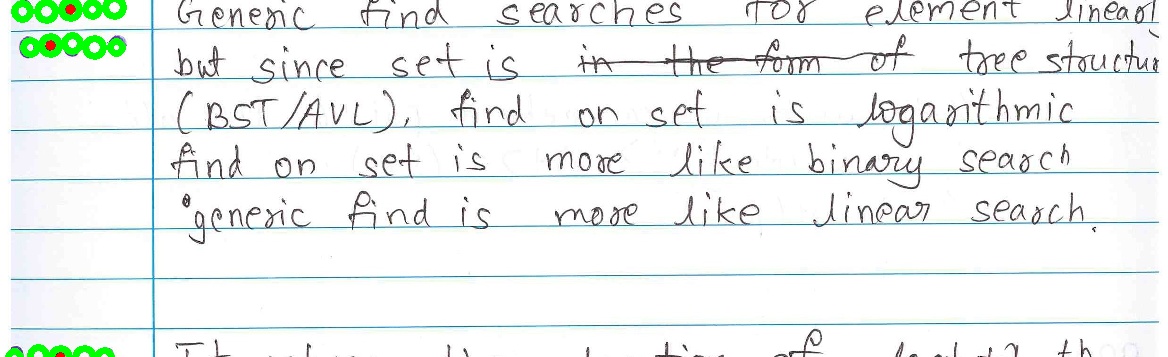 Generic find searches for element linearl
but since set is in the form of tree structur
(BST/AVL), find on set is logarithmic
find on set is more like binary search
generic find is more like linear search.